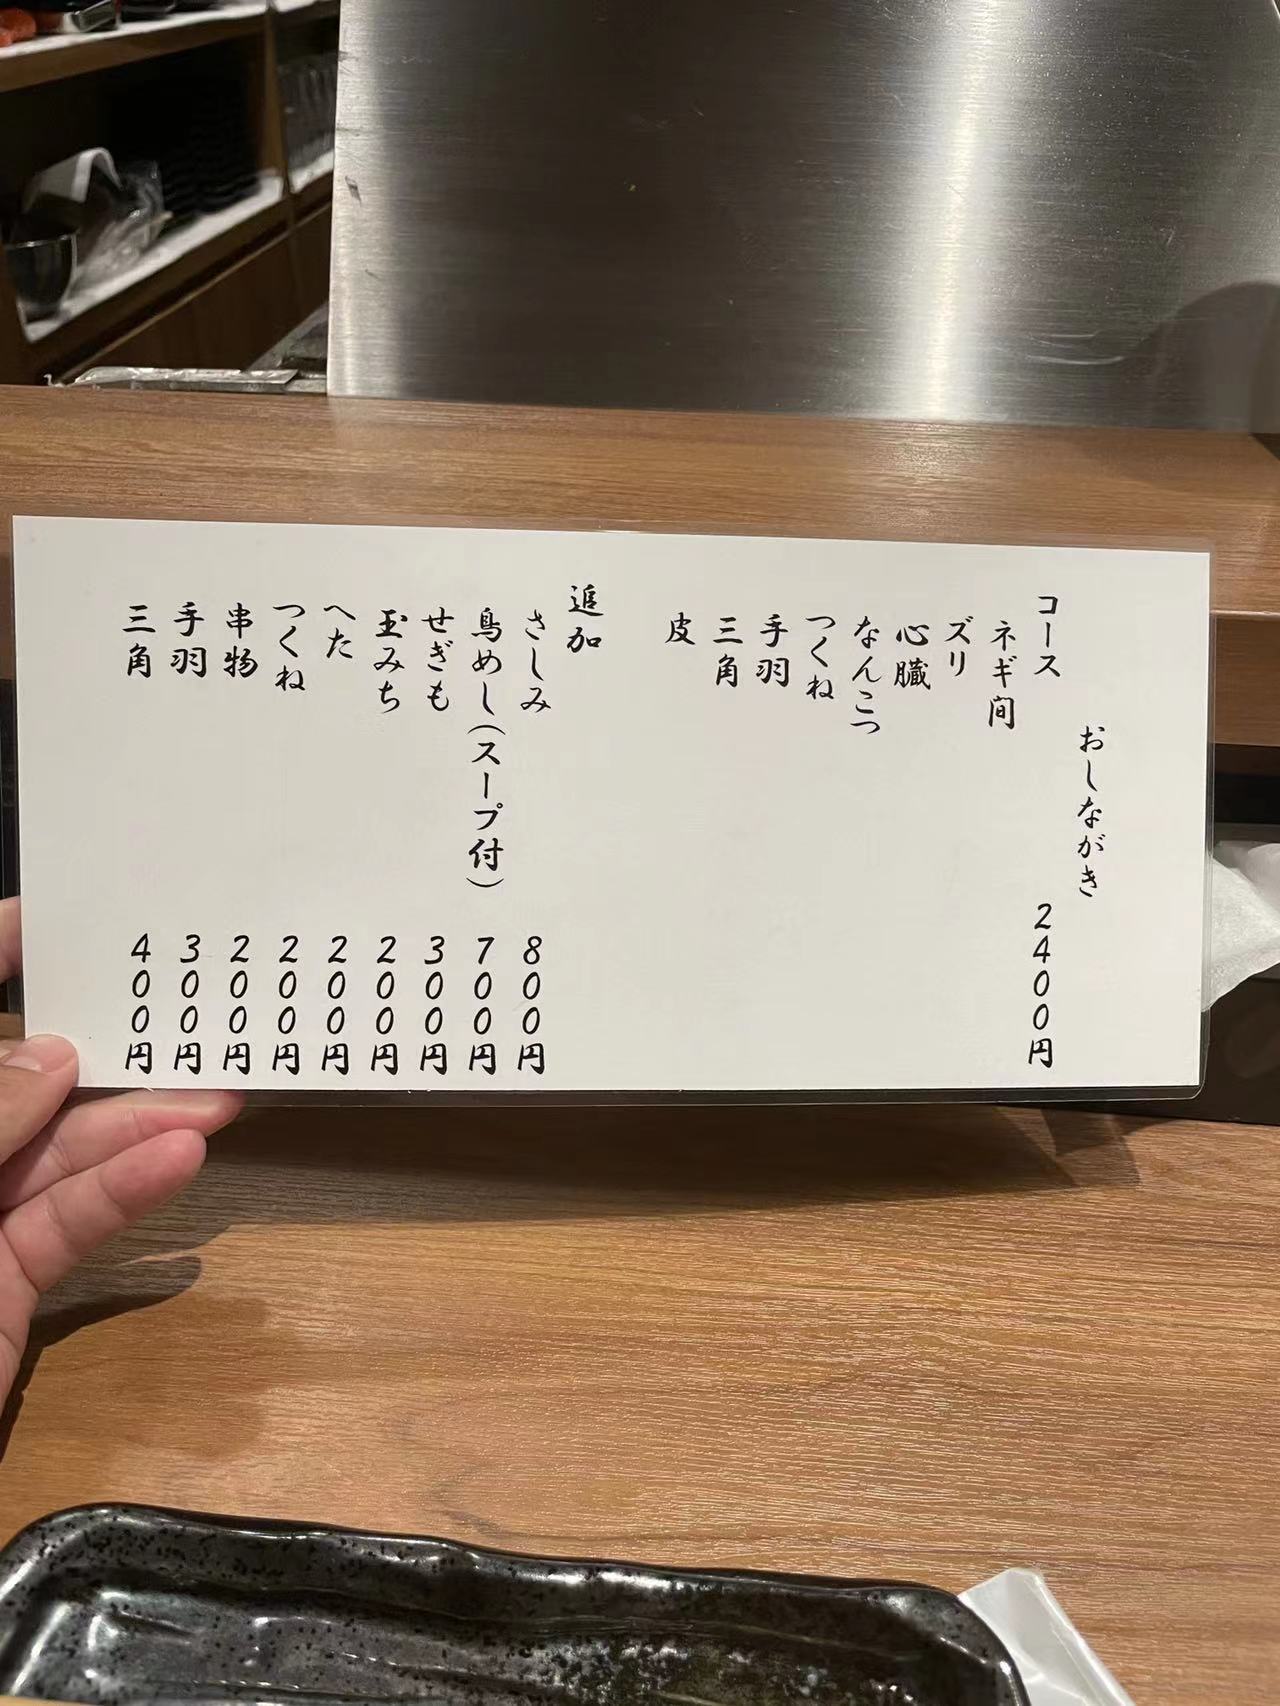 おしながき
コース 2400円
ネギ間
ズリ
心臓
なんこつ
つくね
手羽
三角
皮
追加
さしみ 800円
鳥めし(スープ付) 700円
せぎも 300円
玉みち 200円
へた 200円
つくね 200円
串物 200円
手羽 300円
三角 400円